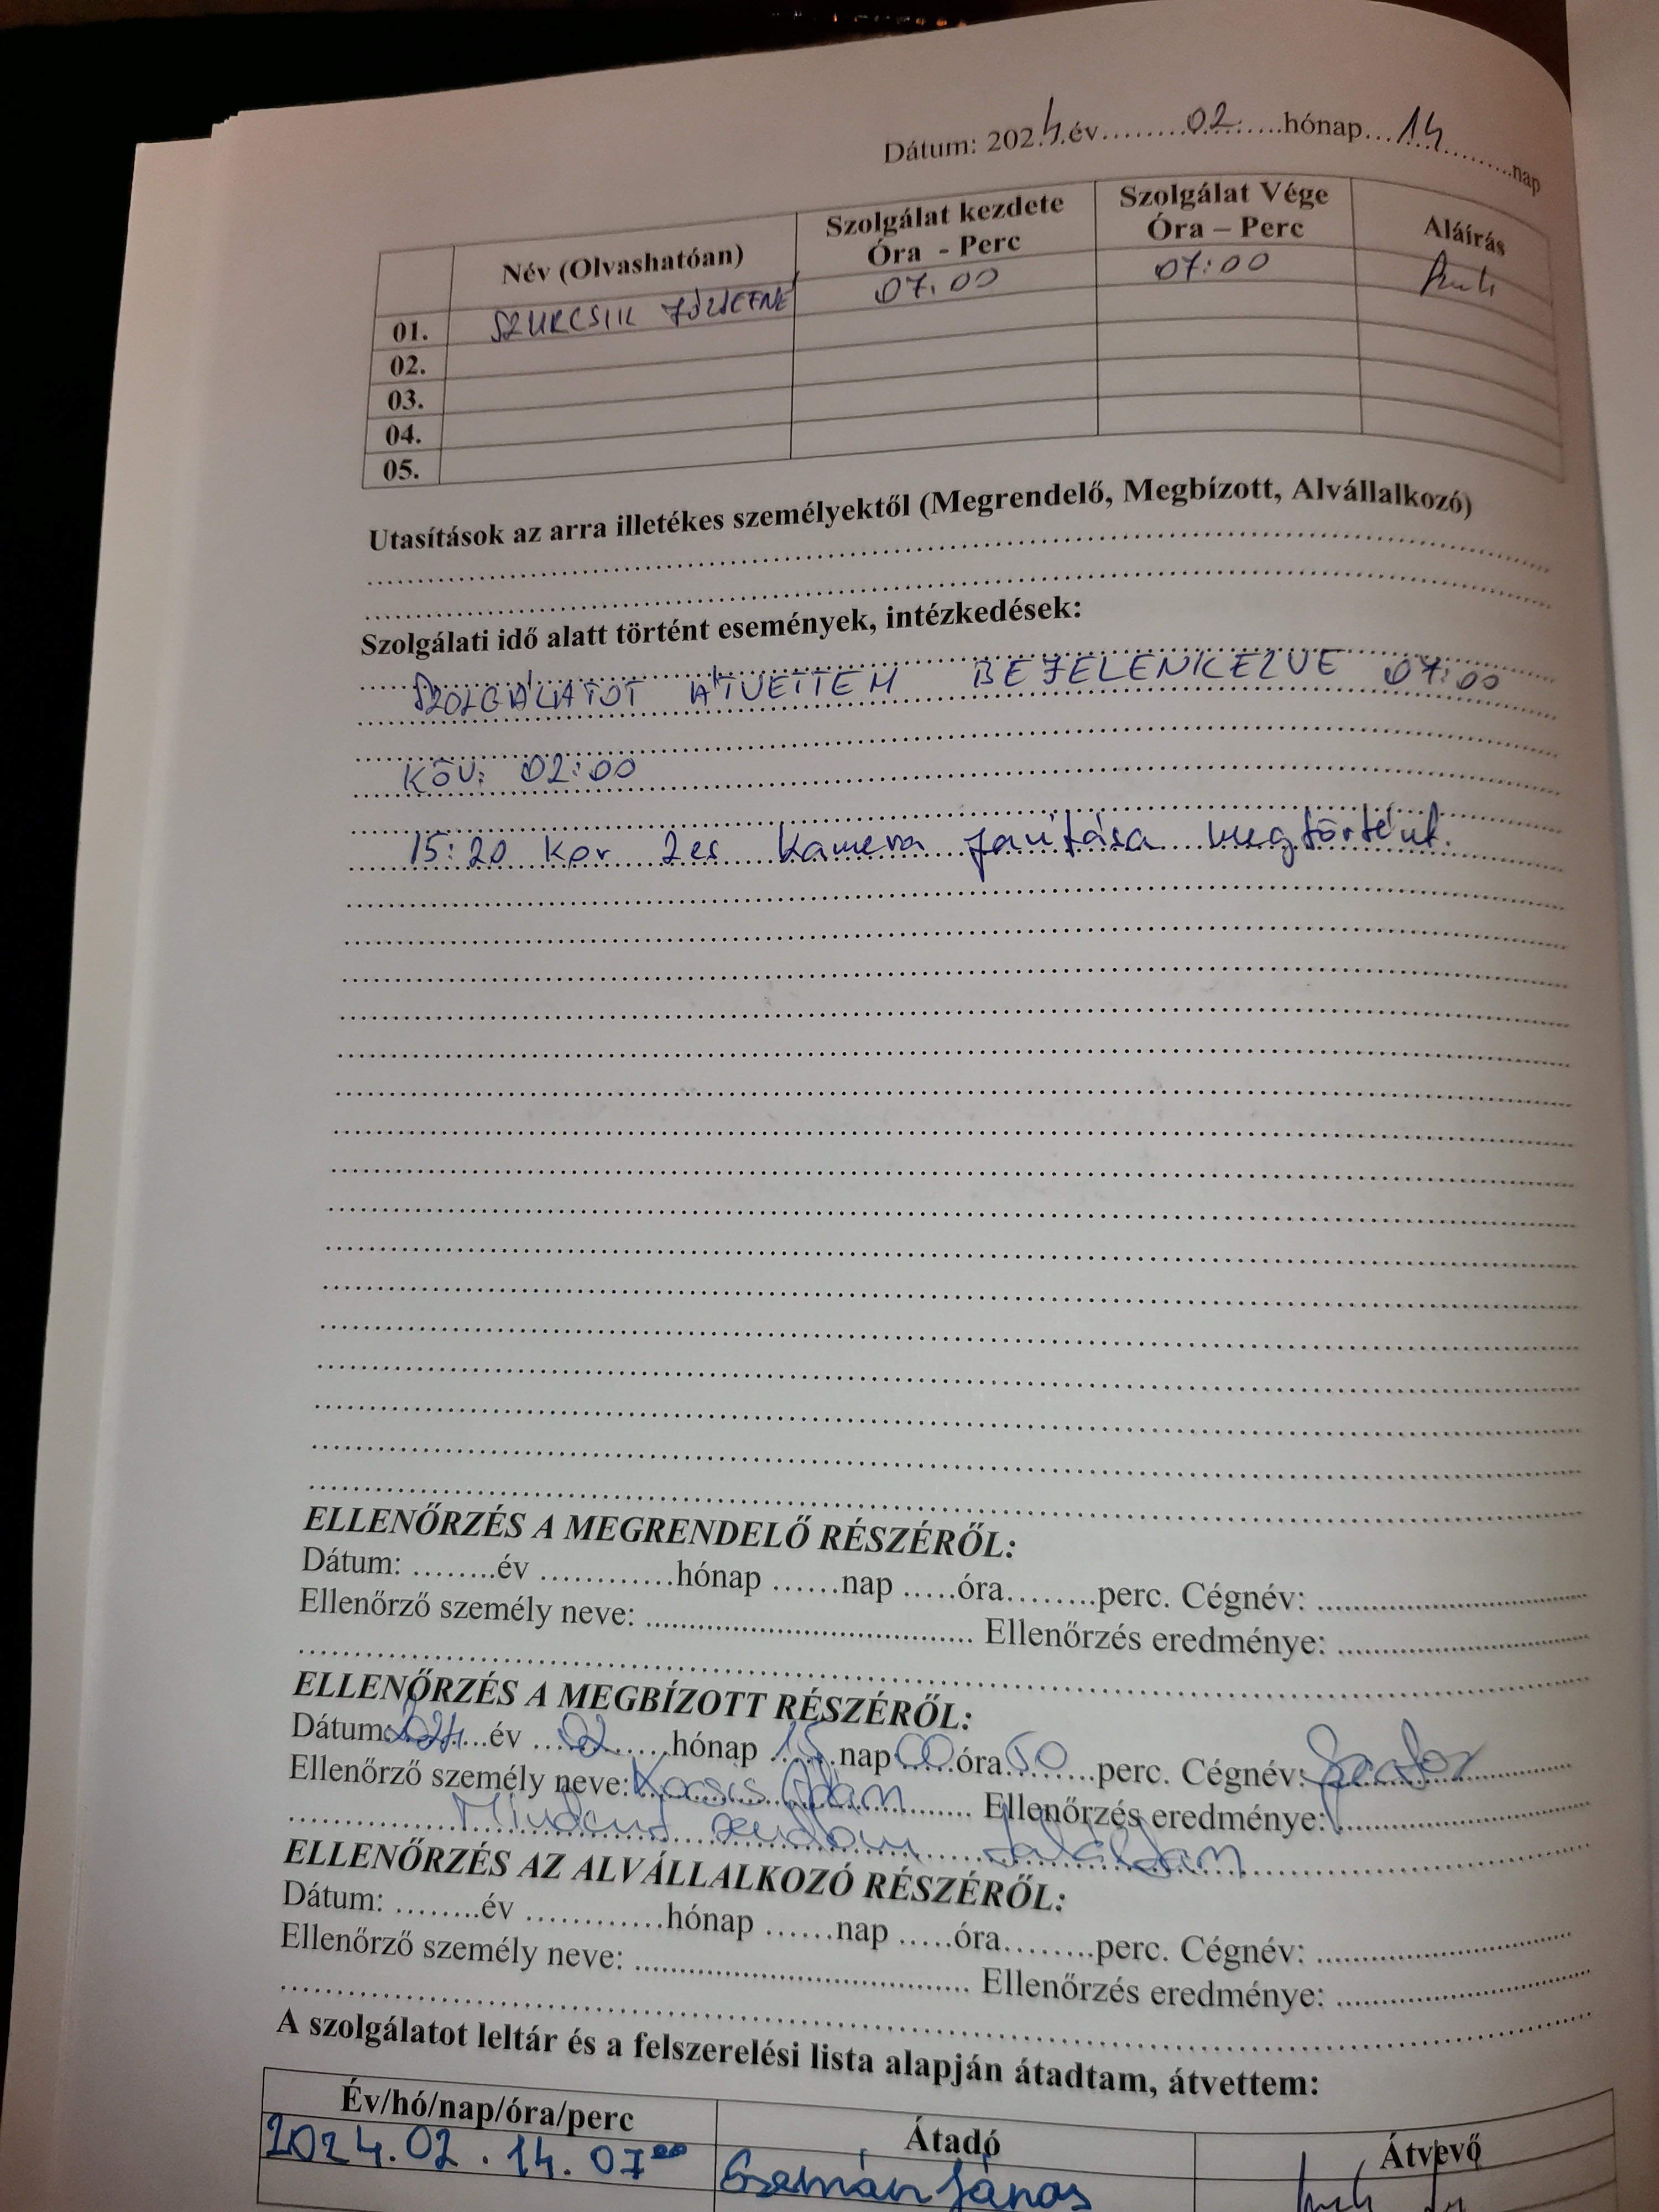 Dátum: 2024.év.........02.......hónap...14..........nap
Név (Olvashatóan) Szolgálat kezdete Óra - Perc Szolgálat Vége Óra – Perc Aláírás
01. SZURCSIK JÓZSEFNÉ 07.00 07:00
02.
03.
04.
05.
Utasítások az arra illetékes személyektől (Megrendelő, Megbízott, Alvállalkozó)
Szolgálati idő alatt történt események, intézkedések:
SZOLGÁLATOT ÁTVETTEM BEJELENKEZVE 07:00
KÖV: 02:00
15:20 kor 2es kamera javítása megtörtént.
ELLENŐRZÉS A MEGRENDELŐ RÉSZÉRŐL:
Dátum: ........év ............hónap ......nap .....óra........perc. Cégnév: ..............................
Ellenőrző személy neve: ...................................... Ellenőrzés eredménye: ..............................
ELLENŐRZÉS A MEGBÍZOTT RÉSZÉRŐL:
Dátum: 2024...év ...02......hónap 15..nap 00...óra 50...perc. Cégnév:
Ellenőrző személy neve: Kocsis Ádám Ellenőrzés eredménye:
Mindent rendben találtam
ELLENŐRZÉS AZ ALVÁLLALKOZÓ RÉSZÉRŐL:
Dátum: ........év ............hónap ......nap .....óra........perc. Cégnév: ..............................
Ellenőrző személy neve: ...................................... Ellenőrzés eredménye: ..............................
A szolgálatot leltár és a felszerelési lista alapján átadtam, átvettem:
Év/hó/nap/óra/perc Átadó Átvevő
2024.02.14.07⁰⁰ Csemán János